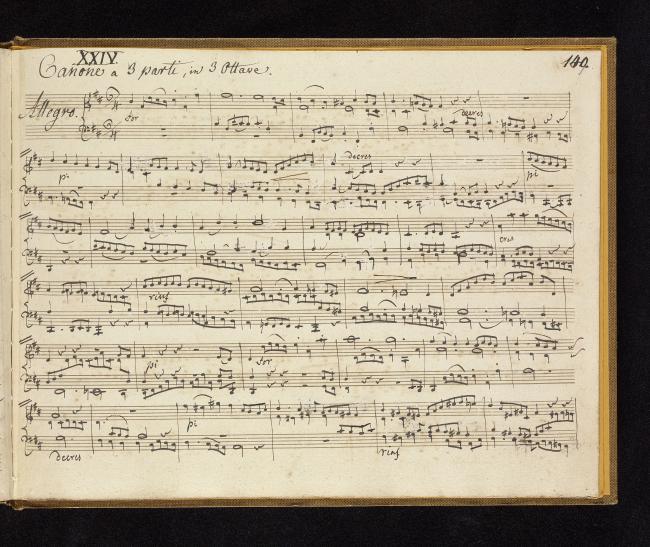 XXIV.
140
Canone a 3 parti, in 3 Ottave.
Allegro.
for
decres
decres
pi
pi
cres
rinf
pi
for
pi
decres
rinf